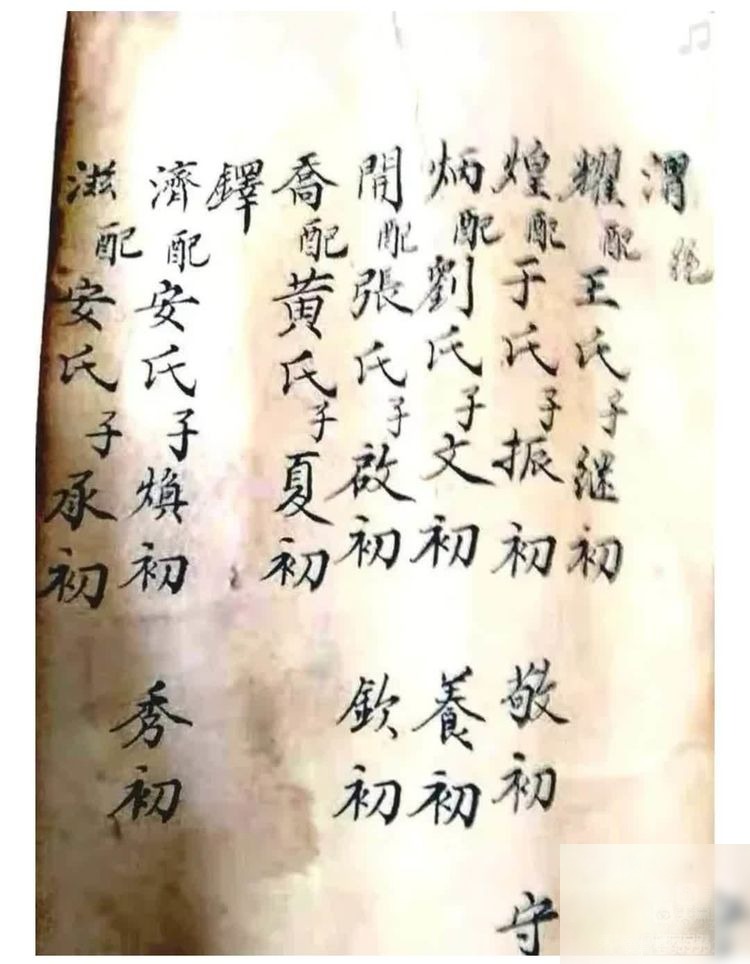 渭
耀配王氏子继初
煌配于氏子振初 敬初 守
炳配劉氏子文初 養初
閒配張氏子啟初 欽初
喬配黃氏子夏初
鐸
濟配安氏子煥初 秀初
滋配安氏子承初